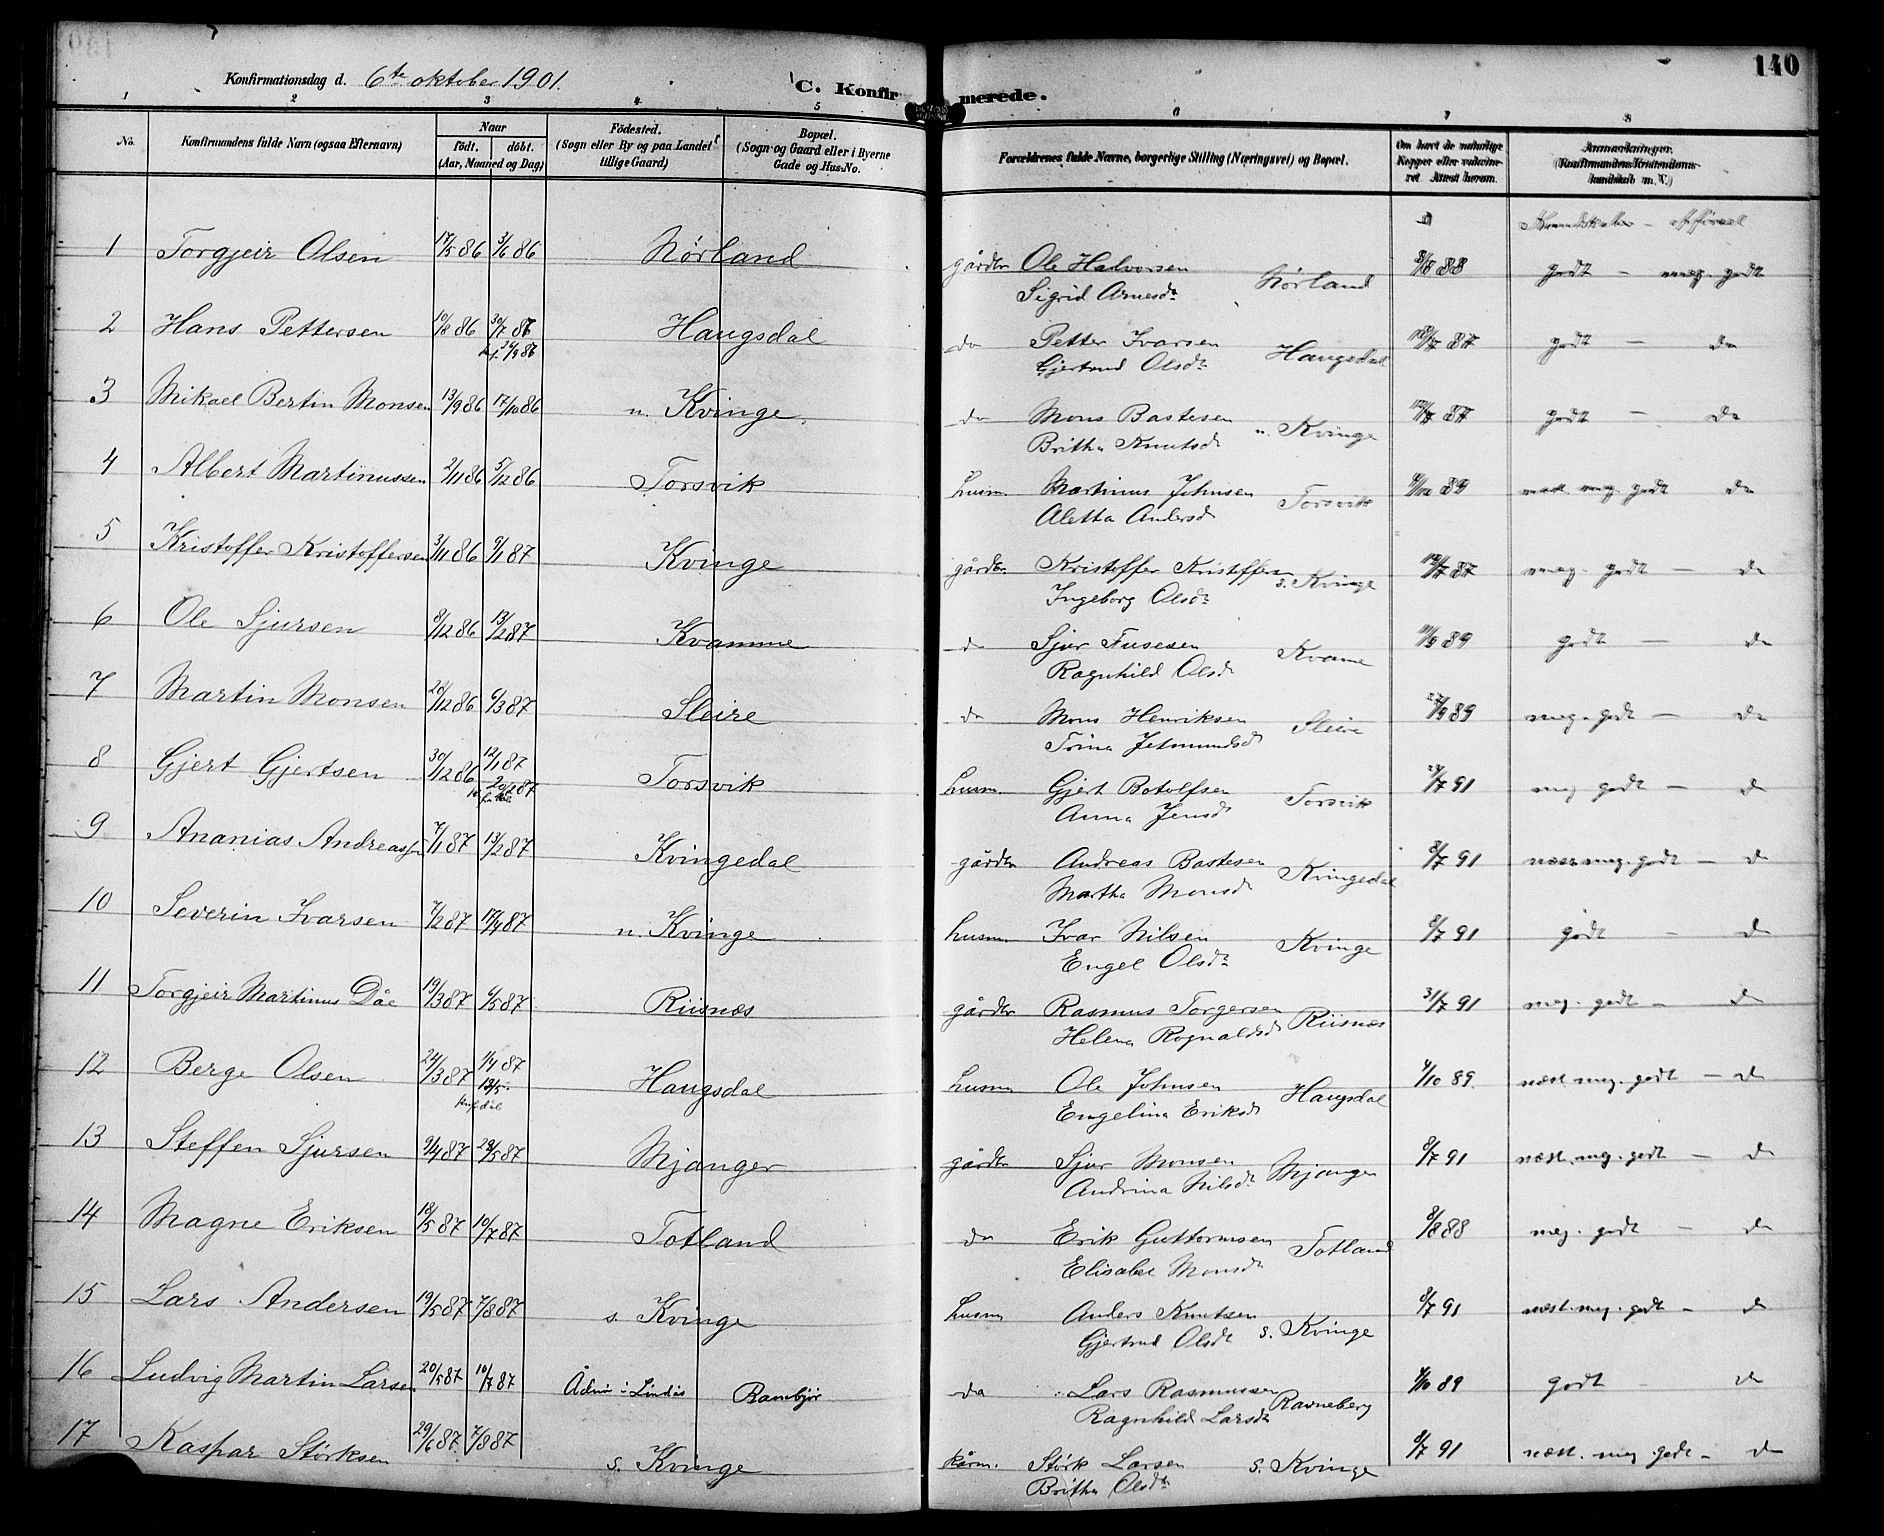 140
Konfirmationsdag d. 6te oktober 1901.
C. Konfirmerede.
1 2 3 4 5 6 7 8
No.
Konfirmandens fulde Navn (ogsaa Efternavn)
Naar
födt. döbt.
(Aar, Maaned og Dag)
Födested.
(Sogn eller By og paa Landet
tillige Gaard)
Bopæl.
(Sogn og Gaard eller i Byerne
Gade og Hus-No.
Forældrenes fulde Navne, borgerlige Stilling (Næringsvei) og Bopæl.
Om havt de naturlige
Kopper eller vaccine-
ret. Attest herom.
Anmærkninger.
(Konfirmandens Kristendoms-
kundskab m. V.)
Kundskaber - opførsel
1 Torgjeir Olsen 17/5 86 3/6 86 Nørland gårdbr Ole Halvorsen Nørland 8/8 88 godt - meg. godt
Sigrid Arnesdr
2 Hans Pettersen 10/8 86 30/7 86 Haugsdal do Petter Ivarsen Haugsdal 87 godt - do
26/9 86 Gjertrud Olsdr
3 Mikael Bertin Monsen 13/9 86 17/10 86 n. Kvinge do Mons Bastesen n. Kvinge 87 godt - do
Britha Knutsd
4 Albert Martinussen 2/11 86 5/12 86 Torsvik husm. Martinus Johnsen Torsvik 89 meg. godt do
Aletta Andersd
5 Kristoffer Kristoffersen 3/11 86 9/1 87 Kvinge gårdbr. Kristoffer Kristoffersen s. Kvinge 87 meg. godt - do
Ingeborg Olsdr
6 Ole Sjursen 8/12 86 13/2 87 Kvamme do Sjur Fusesen Kvame 89 godt - do
Ragnhild Olsd
7 Martin Monsen 86 6/3 87 Sleire do Mons Henriksen Sleire 27/9 89 meg. godt - do
Trina Jetmundsd
8 Gjert Gjertsen 30/12 86 12/1 87 Torsvik husm Gjert Botolfsen Torsvik 91 meg godt - do
20/2 87 Anna Jensd
9 Ananias Andreassn 7/1 87 13/2 87 Kvingedal gårdbr Andreas Bastesen Kvingedal 8/7 91 næst meg. godt - do
Martha Monsd
10 Severin Ivarsen 7/2 87 17/4 87 n. Kvinge husm Ivar Nilsen Kvinge 8/7 91 godt - do
Engel Olsdr
11 Torgjeir Martinus Dåe 19/3 87 6/5 87 Riisnæs gårdbr Rasmus Torgersen Riisnæs 31/7 91 meg. godt - do
Helena Rognaldsd
12 Berge Olsen 24/3 87 1/4 87 Haugsdal husm Ole Johnsen Haugsdal 9/10 89 næst meg. godt - do
Engelina Eriksd
13 Steffen Sjursen 9/4 87 29/5 87 Mjanger gårdbr Sjur Monsen Mjanger 8/7 91 næst. meg. godt - do
Andrina Nilsdr
14 Magne Eriksen 18/5 87 10/7 87 Totland do Erik Guttormsen Totland 8/8 88 meg. godt - do
Elisabet Monsdr
15 Lars Andersen 19/5 87 7/8 87 s. Kvinge husm Anders Knutsen s. Kvinge 8/7 91 næst. meg. godt - do
Gjertrud Olsdr
16 Ludvig Martin Larsen 20/5 87 10/7 87 i Lindås do Lars Rasmussen Ravneberg 9/10 89 godt - do
Ragnhild Larsdr
17 Kaspar Størksen 29/6 87 7/8 87 s. Kvinge Størk Larsen s. Kvinge 8/7 91 næst. meg. godt - do
Britha Olsdr